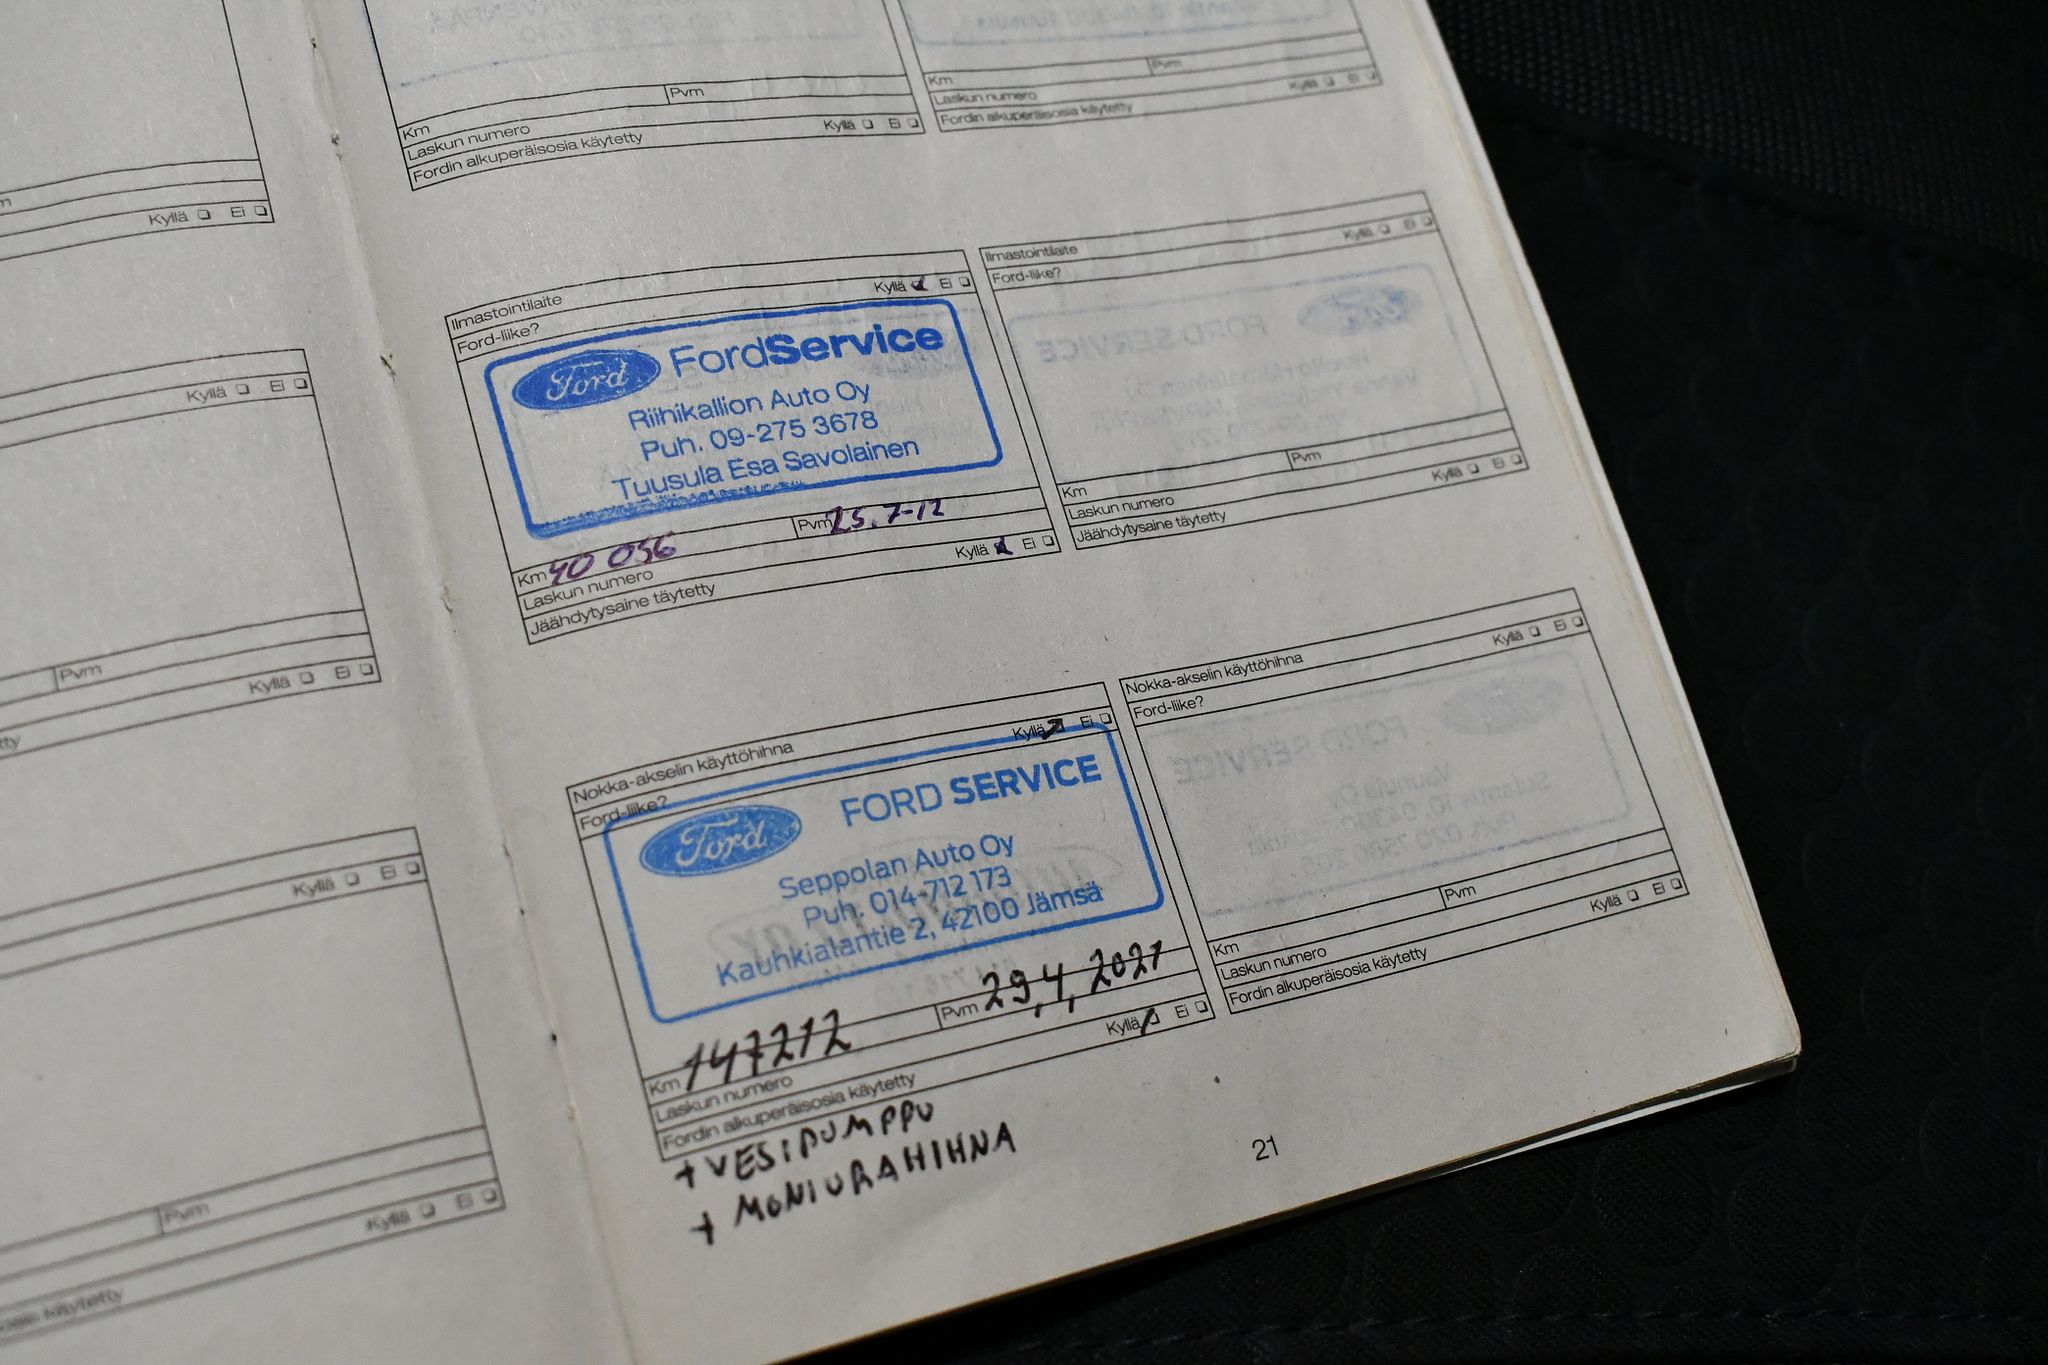 Km
Pvm
Laskun numero
Fordin alkuperäisosia käytetty
Kyllä Ei
Km
Pvm
Laskun numero
Fordin alkuperäisosia käytetty
Kyllä Ei
Kyllä Ei
Kyllä Ei
Pvm
Kyllä Ei
Kyllä Ei
Pvm
Kyllä Ei
käytetty
Ilmastointilaite
Ford-liike?
Kyllä Ei
Ford
FordService
Riihikallion Auto Oy
Puh. 09-275 3678
Tuusula Esa Savolainen
Km 40 056
Pvm 25.7-12
Laskun numero
Jäähdytysaine täytetty
Kyllä Ei
Ilmastointilaite
Ford-liike?
Kyllä Ei
FORD SERVICE
Km
Pvm
Laskun numero
Jäähdytysaine täytetty
Kyllä Ei
Nokka-akselin käyttöhihna
Ford-liike?
Kyllä Ei
Ford
FORD SERVICE
Seppolan Auto Oy
Puh. 014-712 173
Kauhkialantie 2, 42100 Jämsä
Km 147212
Pvm 29.4.2021
Laskun numero
Fordin alkuperäisosia käytetty
Kyllä Ei
+ VESIPUMPPU
+ MONIURAHIHNA
Nokka-akselin käyttöhihna
Ford-liike?
Kyllä Ei
FORD SERVICE
Km
Pvm
Laskun numero
Fordin alkuperäisosia käytetty
Kyllä Ei
21